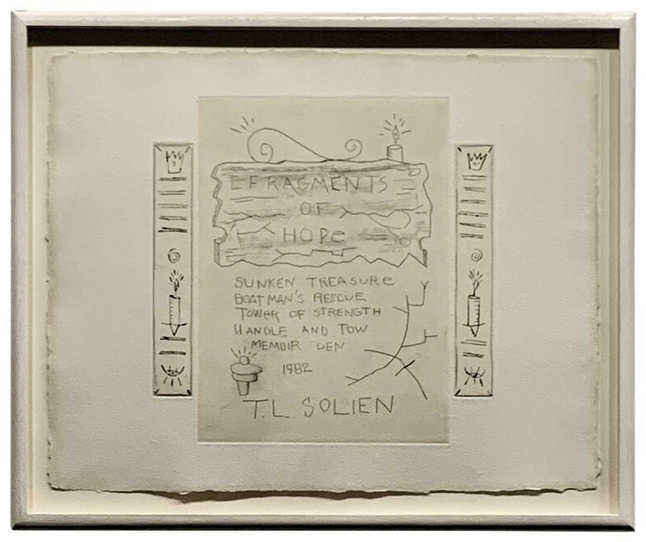 EFRAGMENTS
OF
HOPE
SUNKEN TREASURE
BOATMAN'S RESCUE
TOWER OF STRENGTH
HANDLE AND TOW
MEMOIR DEN
1982
T.L. SOLIEN